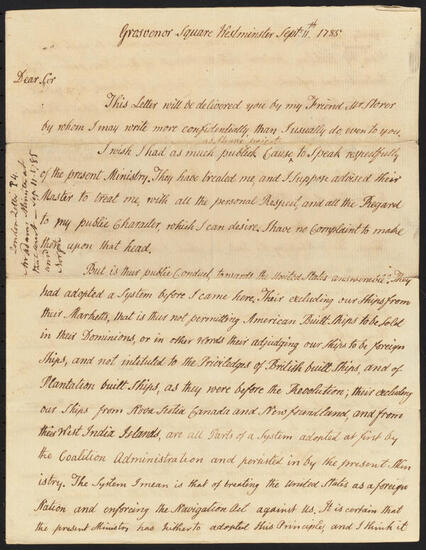 Grosvenor Square Westminster Sept 11th 1785
Dear Sir
This Letter will be delivered you by my Friend Mr Storer
by whom I may write more confidentially than I usually do even to you.
I wish I had as much publick Cause to Speak respectfully
of the present Ministry. They have treated me, and I suppose advised their
Master to treat me, with all the personal Respect, and all the Regard
to my public Character, which I can desire. I have no Complaint to make
upon that head.
But is their public Conduct, towards the United States answerable? They
had adopted a System before I came here. Their excluding our Ships from
their Marketts, that is their not permitting American Built Ships to be Sold
in their Dominions, or in other Words their adjudging our Ships to be foreign
Ships, and not intituled to the Priviledges of British built Ships, and of
Plantation built Ships, as they were before the Revolution; their excluding
our Ships from Nova Scotia Canada and Newfoundland, and from
their West India Islands, are all Parts of a System adopted at first by
the Coalition Administration and persisted in by the present Min
istry. The System I mean is that of treating the United States as a foreign
Nation and enforcing the Navigation Act against Us. It is certain that
the present Minister has hitherto adopted this Principle, and I think it